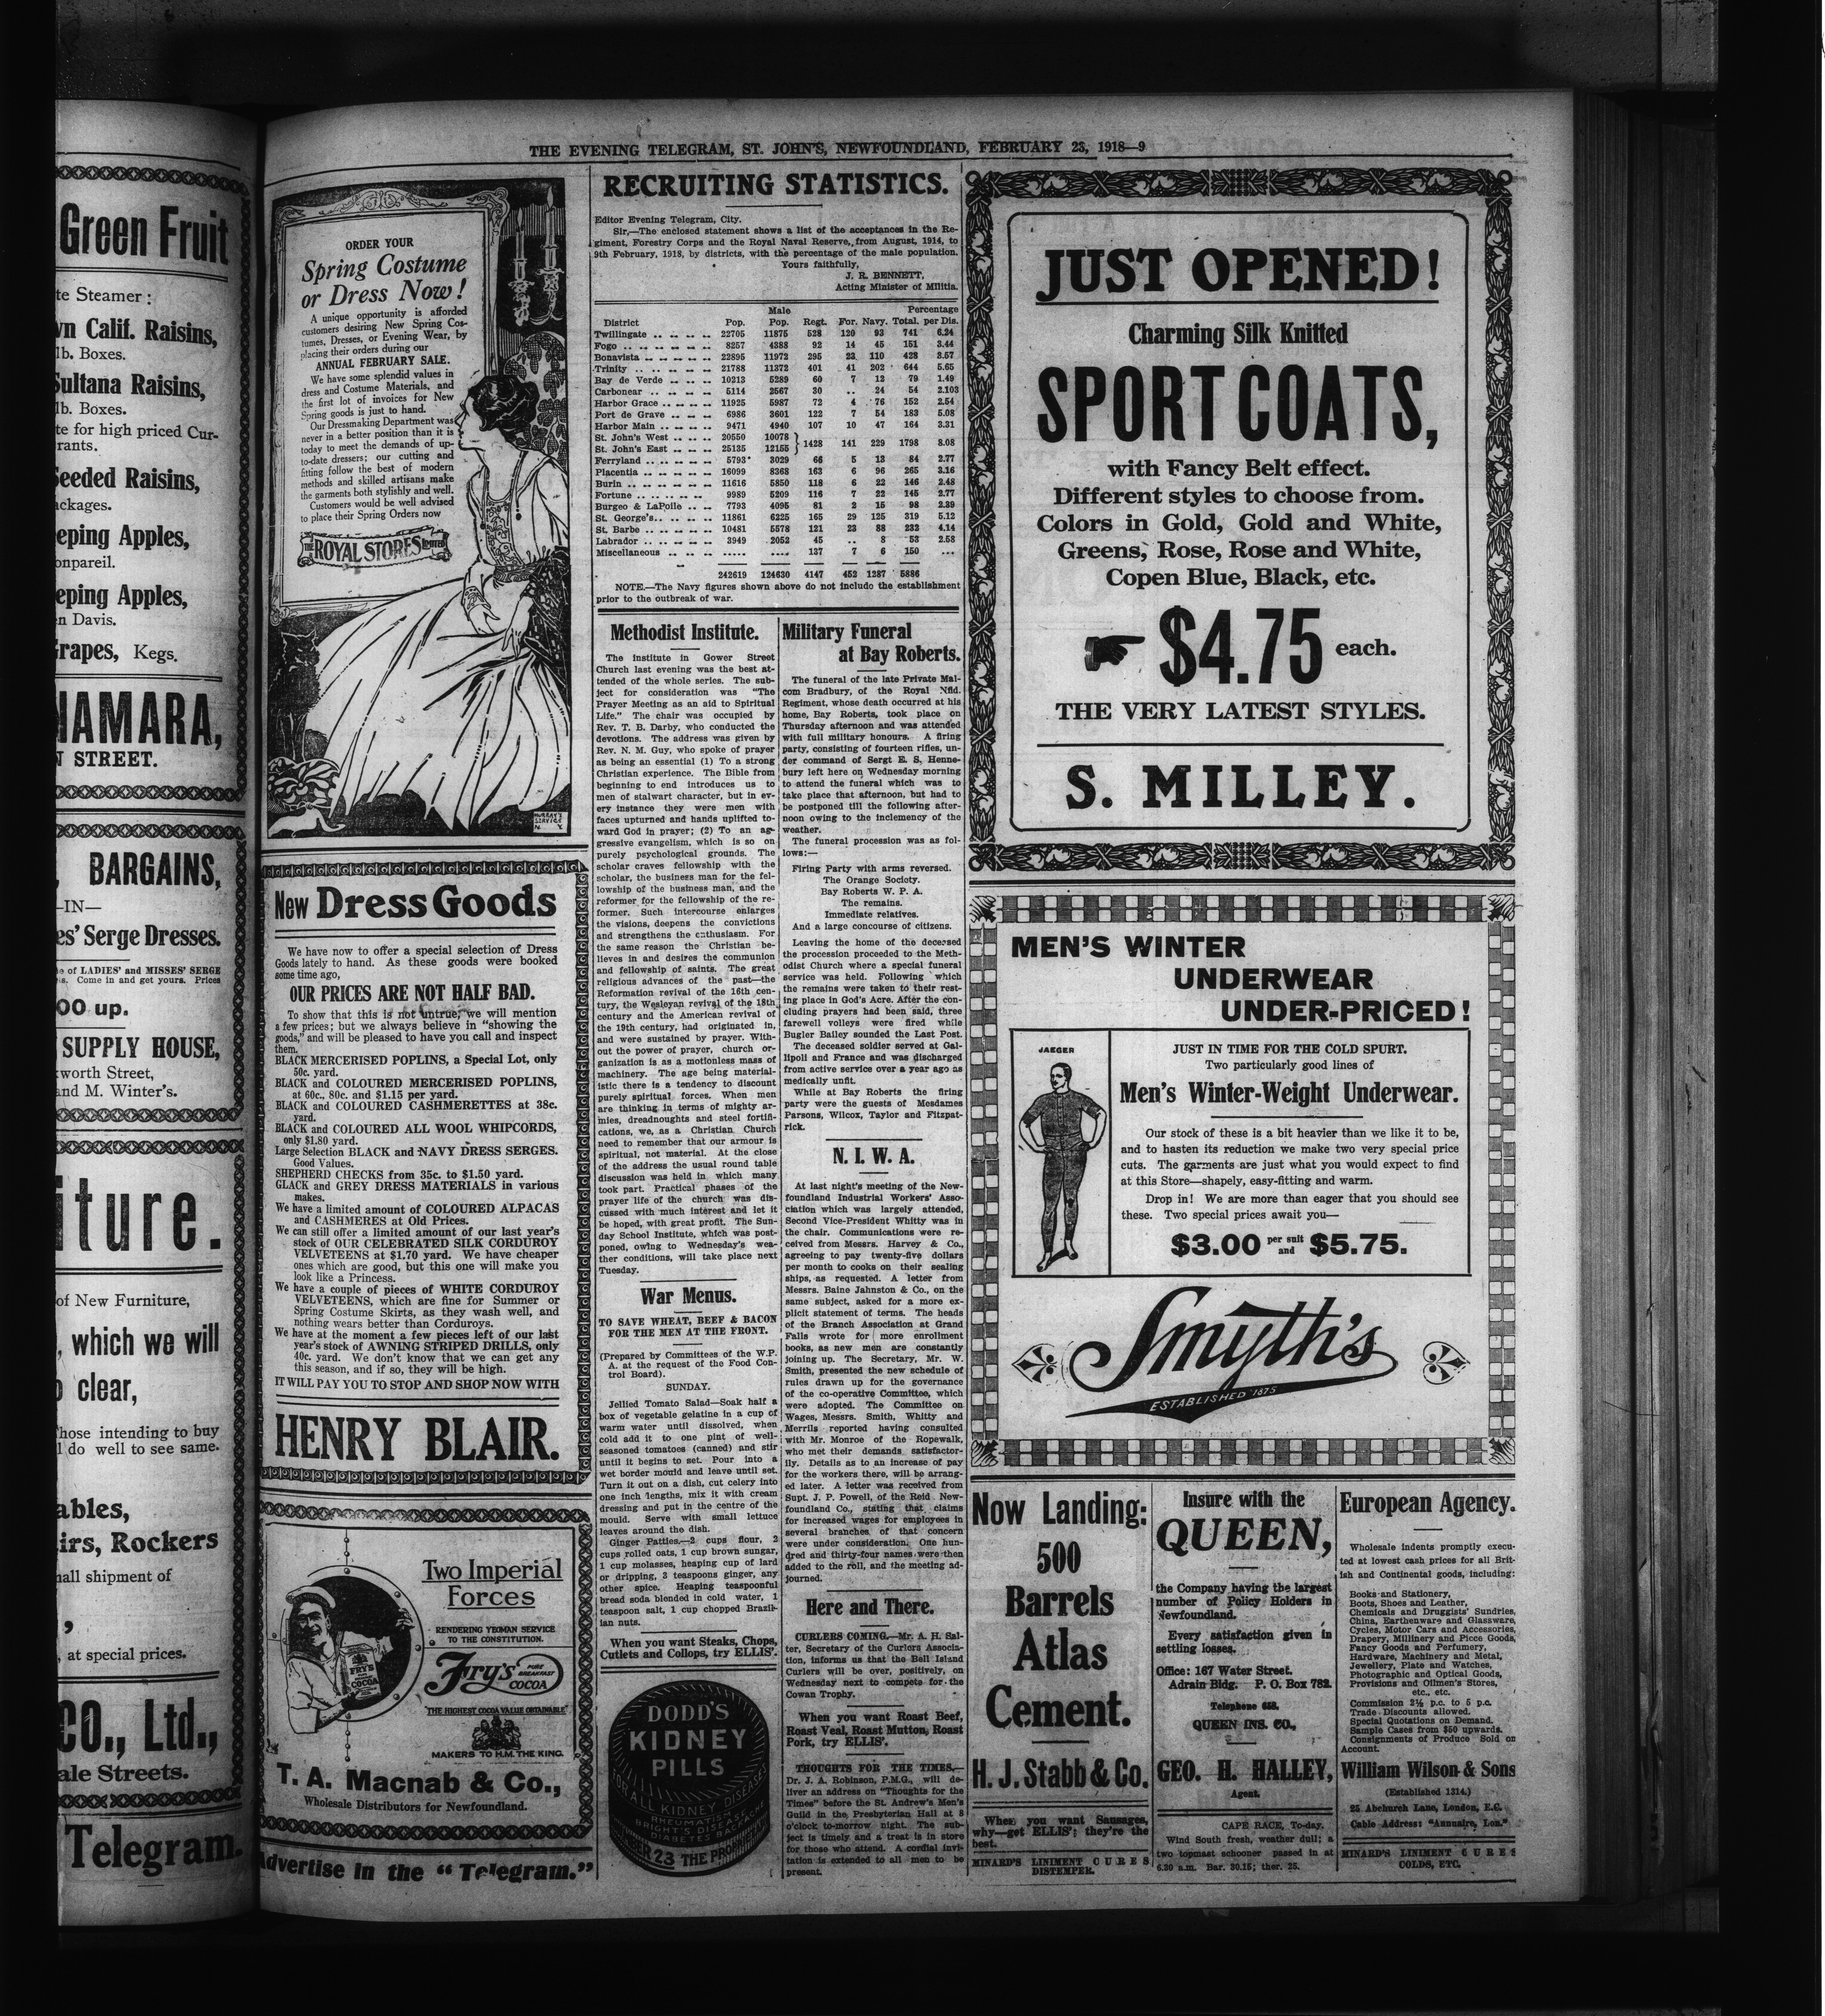 Green Fruit
te Steamer :
vn Calif. Raisins,
lb. Boxes.
Sultana Raisins,
lb. Boxes.
te for high priced Cur-
rants.
Seeded Raisins,
ackages.
eping Apples,
onpareil.
eping Apples,
n Davis.
rapes, Kegs.
NAMARA,
N STREET.
, BARGAINS,
—IN—
es' Serge Dresses.
e of LADIES' and MISSES' SERGE
s. Come in and get yours. Prices
00 up.
SUPPLY HOUSE,
worth Street,
and M. Winter's.
iture.
of New Furniture,
, which we will
o clear,
hose intending to buy
l do well to see same.
ables,
irs, Rockers
hall shipment of
,
, at special prices.
CO., Ltd.,
ale Streets.
Telegram.
THE EVENING TELEGRAM, ST. JOHN'S, NEWFOUNDLAND, FEBRUARY 23, 1918—9
ORDER YOUR
Spring Costume
or Dress Now!
A unique opportunity is afforded
customers desiring New Spring Cos-
tumes, Dresses, or Evening Wear, by
placing their orders during our
ANNUAL FEBRUARY SALE.
We have some splendid values in
dress and Costume Materials, and
the first lot of invoices for New
Spring goods is just to hand.
Our Dressmaking Department was
never in a better position than it is
today to meet the demands of up-
to-date dressers; our cutting and
fitting follow the best of modern
methods and skilled artisans make
the garments both stylishly and well.
Customers would be well advised
to place their Spring Orders now
THE ROYAL STORES Limited
MURRAY'S
SERVICE
N. Y.
New Dress Goods
We have now to offer a special selection of Dress
Goods lately to hand. As these goods were booked
some time ago,
OUR PRICES ARE NOT HALF BAD.
To show that this is not untrue, we will mention
a few prices; but we always believe in "showing the
goods," and will be pleased to have you call and inspect
them.
BLACK MERCERISED POPLINS, a Special Lot, only
50c. yard.
BLACK and COLOURED MERCERISED POPLINS,
at 60c., 80c. and $1.15 per yard.
BLACK and COLOURED CASHMERETTES at 38c.
yard.
BLACK and COLOURED ALL WOOL WHIPCORDS,
only $1.80 yard.
Large Selection BLACK and NAVY DRESS SERGES.
Good Values.
SHEPHERD CHECKS from 35c. to $1.50 yard.
GLACK and GREY DRESS MATERIALS in various
makes.
We have a limited amount of COLOURED ALPACAS
and CASHMERES at Old Prices.
We can still offer a limited amount of our last year's
stock of OUR CELEBRATED SILK CORDUROY
VELVETEENS at $1.70 yard. We have cheaper
ones which are good, but this one will make you
look like a Princess.
We have a couple of pieces of WHITE CORDUROY
VELVETEENS, which are fine for Summer or
Spring Costume Skirts, as they wash well, and
nothing wears better than Corduroys.
We have at the moment a few pieces left of our last
year's stock of AWNING STRIPED DRILLS, only
40c. yard. We don't know that we can get any
this season, and if so, they will be high.
IT WILL PAY YOU TO STOP AND SHOP NOW WITH
HENRY BLAIR.
FRY'S
COCOA
Two Imperial
Forces
RENDERING YEOMAN SERVICE
TO THE CONSTITUTION.
Fry's PURE BREAKFAST COCOA
"THE HIGHEST COCOA VALUE OBTAINABLE"
MAKERS TO H.M. THE KING.
T. A. Macnab & Co.,
Wholesale Distributors for Newfoundland.
Advertise in the "Telegram."
RECRUITING STATISTICS.
Editor Evening Telegram, City.
Sir,—The enclosed statement shows a list of the acceptances in the Re-
giment, Forestry Corps and the Royal Naval Reserve, from August, 1914, to
9th February, 1918, by districts, with the percentage of the male population.
Yours faithfully,
J. R. BENNETT,
Acting Minister of Militia.
Male Percentage
District Pop. Pop. Regt. For. Navy. Total. per Dis.
Twillingate .. .. .. .. 22705 11875 528 120 93 741 6.24
Fogo .. .. .. .. .. .. 8257 4388 92 14 45 151 3.44
Bonavista .. .. .. .. .. 22895 11972 295 23 110 428 3.57
Trinity .. .. .. .. .. 21788 11372 401 41 202 644 5.65
Bay de Verde .. .. .. 10213 5289 60 7 12 79 1.49
Carbonear .. .. .. .. 5114 2567 30 .. 24 54 2.103
Harbor Grace .. .. .. .. 11925 5987 72 4 76 152 2.54
Port de Grave .. .. .. 6986 3601 122 7 54 183 5.08
Harbor Main .. .. .. .. 9471 4940 107 10 47 164 3.31
St. John's West .. .. .. 20550 10078
} 1428 141 229 1798 8.08
St. John's East .. .. .. 25135 12155
Ferryland .. .. .. .. .. 5793 3029 66 5 13 84 2.77
Placentia .. .. .. .. .. 16099 8368 163 6 96 265 3.16
Burin .. .. .. .. .. .. 11616 5850 118 6 22 146 2.48
Fortune .. .. .. .. .. 9989 5209 116 7 22 145 2.77
Burgeo & LaPoile .. .. 7793 4095 81 2 15 98 2.39
St. George's .. .. .. .. 11861 6225 165 29 125 319 5.12
St. Barbe .. .. .. .. .. 10481 5578 121 23 88 232 4.14
Labrador .. .. .. .. .. 3949 2052 45 .. 8 53 2.58
Miscellaneous .. .. .. ..... .... 137 7 6 150 ...
242619 124630 4147 452 1287 5886
NOTE.—The Navy figures shown above do not include the establishment
prior to the outbreak of war.
Methodist Institute.
The institute in Gower Street
Church last evening was the best at-
tended of the whole series. The sub-
ject for consideration was "The
Prayer Meeting as an aid to Spiritual
Life." The chair was occupied by
Rev. T. B. Darby, who conducted the
devotions. The address was given by
Rev. N. M. Guy, who spoke of prayer
as being an essential (1) To a strong
Christian experience. The Bible from
beginning to end introduces us to
men of stalwart character, but in ev-
ery instance they were men with
faces upturned and hands uplifted to-
ward God in prayer; (2) To an ag-
gressive evangelism, which is so on
purely psychological grounds. The
scholar craves fellowship with the
scholar, the business man for the fel-
lowship of the business man, and the
reformer for the fellowship of the re-
former. Such intercourse enlarges
the visions, deepens the convictions
and strengthens the enthusiasm. For
the same reason the Christian be-
lieves in and desires the communion
and fellowship of saints. The great
religious advances of the past—the
Reformation revival of the 16th cen-
tury, the Wesleyan revival of the 18th
century and the American revival of
the 19th century, had originated in,
and were sustained by prayer. With-
out the power of prayer, church or-
ganization is as a motionless mass of
machinery. The age being material-
istic there is a tendency to discount
purely spiritual forces. When men
are thinking in terms of mighty ar-
mies, dreadnoughts and steel fortifi-
cations, we, as a Christian Church
need to remember that our armour is
spiritual, not material. At the close
of the address the usual round table
discussion was held in which many
took part. Practical phases of the
prayer life of the church was dis-
cussed with much interest and let it
be hoped, with great profit. The Sun-
day School Institute, which was post-
poned, owing to Wednesday's wea-
ther conditions, will take place next
Tuesday.
War Menus.
TO SAVE WHEAT, BEEF & BACON
FOR THE MEN AT THE FRONT.
(Prepared by Committees of the W.P.
A. at the request of the Food Con-
trol Board).
SUNDAY.
Jellied Tomato Salad—Soak half a
box of vegetable gelatine in a cup of
warm water until dissolved, when
cold add it to one pint of well-
seasoned tomatoes (canned) and stir
until it begins to set. Pour into a
wet border mould and leave until set.
Turn it out on a dish, cut celery into
one inch lengths, mix it with cream
dressing and put in the centre of the
mould. Serve with small lettuce
leaves around the dish.
Ginger Patties.—2 cups flour, 2
cups rolled oats, 1 cup brown sugar,
1 cup molasses, heaping cup of lard
or dripping, 3 teaspoons ginger, any
other spice. Heaping teaspoonful
bread soda blended in cold water, 1
teaspoon salt, 1 cup chopped Brazil-
ian nuts.
When you want Steaks, Chops,
Cutlets and Collops, try ELLIS'.
DODD'S
KIDNEY
PILLS
FOR ALL KIDNEY DISEASES
RHEUMATISM
BRIGHT'S DISEASE
DIABETES BACKACHE
23 THE PR
Military Funeral
at Bay Roberts.
The funeral of the late Private Mal-
com Bradbury, of the Royal Nfld.
Regiment, whose death occurred at his
home, Bay Roberts, took place on
Thursday afternoon and was attended
with full military honours. A firing
party, consisting of fourteen rifles, un-
der command of Sergt E. S. Henne-
bury left here on Wednesday morning
to attend the funeral which was to
take place that afternoon, but had to
be postponed till the following after-
noon owing to the inclemency of the
weather.
The funeral procession was as fol-
lows:—
Firing Party with arms reversed.
The Orange Society.
Bay Roberts W. P. A.
The remains.
Immediate relatives.
And a large concourse of citizens.
Leaving the home of the deceased
the procession proceeded to the Meth-
odist Church where a special funeral
service was held. Following which
the remains were taken to their rest-
ing place in God's Acre. After the con-
cluding prayers had been said, three
farewell volleys were fired while
Bugler Bailey sounded the Last Post.
The deceased soldier served at Gal-
lipoli and France and was discharged
from active service over a year ago as
medically unfit.
While at Bay Roberts the firing
party were the guests of Mesdames
Parsons, Wilcox, Taylor and Fitzpat-
rick.
N. I. W. A.
At last night's meeting of the New-
foundland Industrial Workers' Asso-
ciation which was largely attended,
Second Vice-President Whitty was in
the chair. Communications were re-
ceived from Messrs. Harvey & Co.,
agreeing to pay twenty-five dollars
per month to cooks on their sealing
ships, as requested. A letter from
Messrs. Baine Jahnston & Co., on the
same subject, asked for a more ex-
plicit statement of terms. The heads
of the Branch Association at Grand
Falls wrote for more enrollment
books, as new men are constantly
joining up. The Secretary, Mr. W.
Smith, presented the new schedule of
rules drawn up for the governance
of the co-operative Committee, which
were adopted. The Committee on
Wages, Messrs. Smith, Whitty and
Merrils reported having consulted
with Mr. Monroe of the Ropewalk,
who met their demands satisfactor-
ily. Details as to an increase of pay
for the workers there, will be arrang-
ed later. A letter was received from
Supt. J. P. Powell, of the Reid New-
foundland Co., stating that claims
for increased wages for employees in
several branches of that concern
were under consideration. One hun-
dred and thirty-four names were then
added to the roll, and the meeting ad-
journed.
Here and There.
CURLERS COMING.—Mr. A. H. Sal-
ter, Secretary of the Curlers Associa-
tion, informs us that the Bell Island
Curlers will be over, positively, on
Wednesday next to compete for the
Cowan Trophy.
When you want Roast Beef,
Roast Veal, Roast Mutton, Roast
Pork, try ELLIS'.
THOUGHTS FOR THE TIMES.—
Dr. J. A. Robinson, P.M.G., will de-
liver an address on "Thoughts for the
Times" before the St. Andrew's Men's
Guild in the Presbyterian Hall at 8
o'clock to-morrow night. The sub-
ject is timely and a treat is in store
for those who attend. A cordial invi-
tation is extended to all men to be
present.
JUST OPENED!
Charming Silk Knitted
SPORT COATS,
with Fancy Belt effect.
Different styles to choose from.
Colors in Gold, Gold and White,
Greens, Rose, Rose and White,
Copen Blue, Black, etc.
$4.75 each.
THE VERY LATEST STYLES.
S. MILLEY.
MEN'S WINTER
UNDERWEAR
UNDER-PRICED!
JAEGER
JUST IN TIME FOR THE COLD SPURT.
Two particularly good lines of
Men's Winter-Weight Underwear.
Our stock of these is a bit heavier than we like it to be,
and to hasten its reduction we make two very special price
cuts. The garments are just what you would expect to find
at this Store—shapely, easy-fitting and warm.
Drop in! We are more than eager that you should see
these. Two special prices await you—
$3.00 per suit and $5.75.
Smyth's
ESTABLISHED 1875
Now Landing:
500
Barrels
Atlas
Cement.
H. J. Stabb & Co.
When you want Sausages,
why—get ELLIS'; they're the
best.
MINARD'S LINIMENT CURES
DISTEMPER.
Insure with the
QUEEN,
the Company having the largest
number of Policy Holders in
Newfoundland.
Every satisfaction given in
settling losses.
Office: 167 Water Street.
Adrain Bldg. P. O. Box 782.
Telephone 658.
QUEEN INS. CO.,
GEO. H. HALLEY,
Agent.
CAPE RACE, To-day.
Wind South fresh, weather dull; a
two topmast schooner passed in at
6.30 a.m. Bar. 30.15; ther. 25.
European Agency.
Wholesale indents promptly execu-
ted at lowest cash prices for all Brit-
ish and Continental goods, including:
Books and Stationery,
Boots, Shoes and Leather,
Chemicals and Druggists' Sundries,
China, Earthenware and Glassware,
Cycles, Motor Cars and Accessories,
Drapery, Millinery and Piece Goods,
Fancy Goods and Perfumery,
Hardware, Machinery and Metal,
Jewellery, Plate and Watches,
Photographic and Optical Goods,
Provisions and Oilmen's Stores,
etc., etc.
Commission 2½ p.c. to 5 p.c.
Trade Discounts allowed.
Special Quotations on Demand.
Sample Cases from $50 upwards.
Consignments of Produce Sold on
Account.
William Wilson & Sons
(Established 1814.)
25 Abchurch Lane, London, E.C.
Cable Address: "Annuaire, Lon."
MINARD'S LINIMENT CURES
COLDS, ETC.